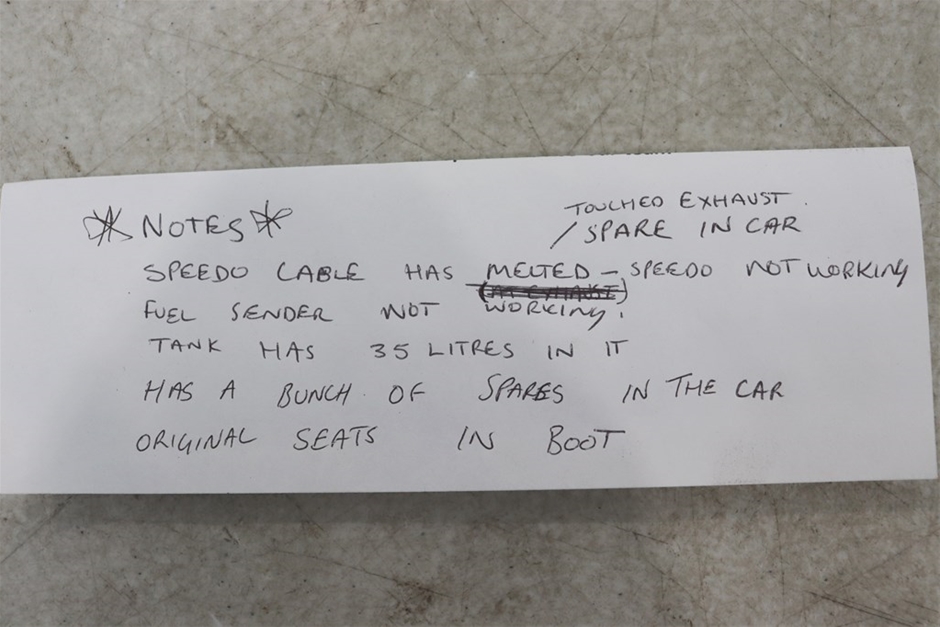 * NOTES *
TOUCHED EXHAUST.
/ SPARE IN CAR
SPEEDO CABLE HAS MELTED - SPEEDO NOT WORKING
FUEL SENDER NOT WORKING.
TANK HAS 35 LITRES IN IT
HAS A BUNCH OF SPARES IN THE CAR
ORIGINAL SEATS IN BOOT